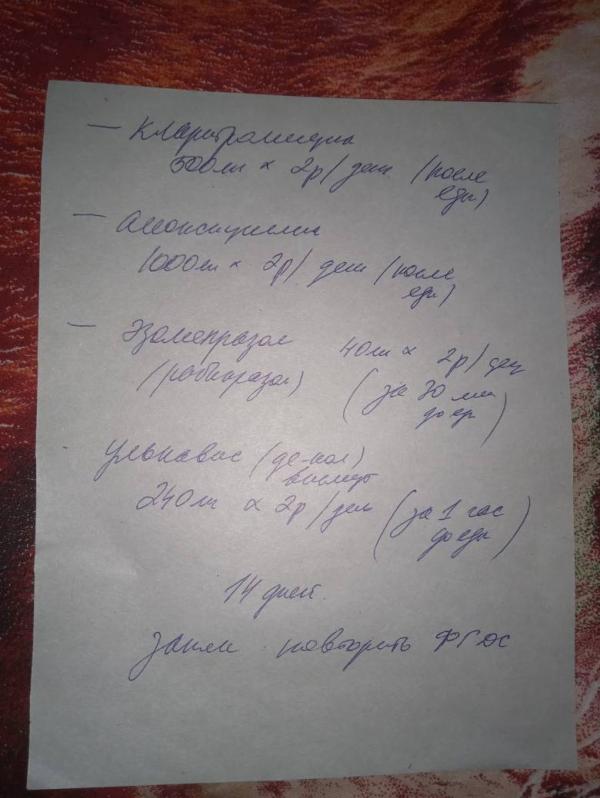 - Кларитромицин
500мг × 2р/день (после
еды)
- Амоксициллин
1000мг × 2р/ день (после
еды)
- Эзомепразол 40мг × 2р/день
(рабепразол) (за 30 мин
до еды)
Улькавис (де-нол)
висмут
240мг × 2р/день (за 1 час
до еды)
14 дней.
Затем повторить ФГДС